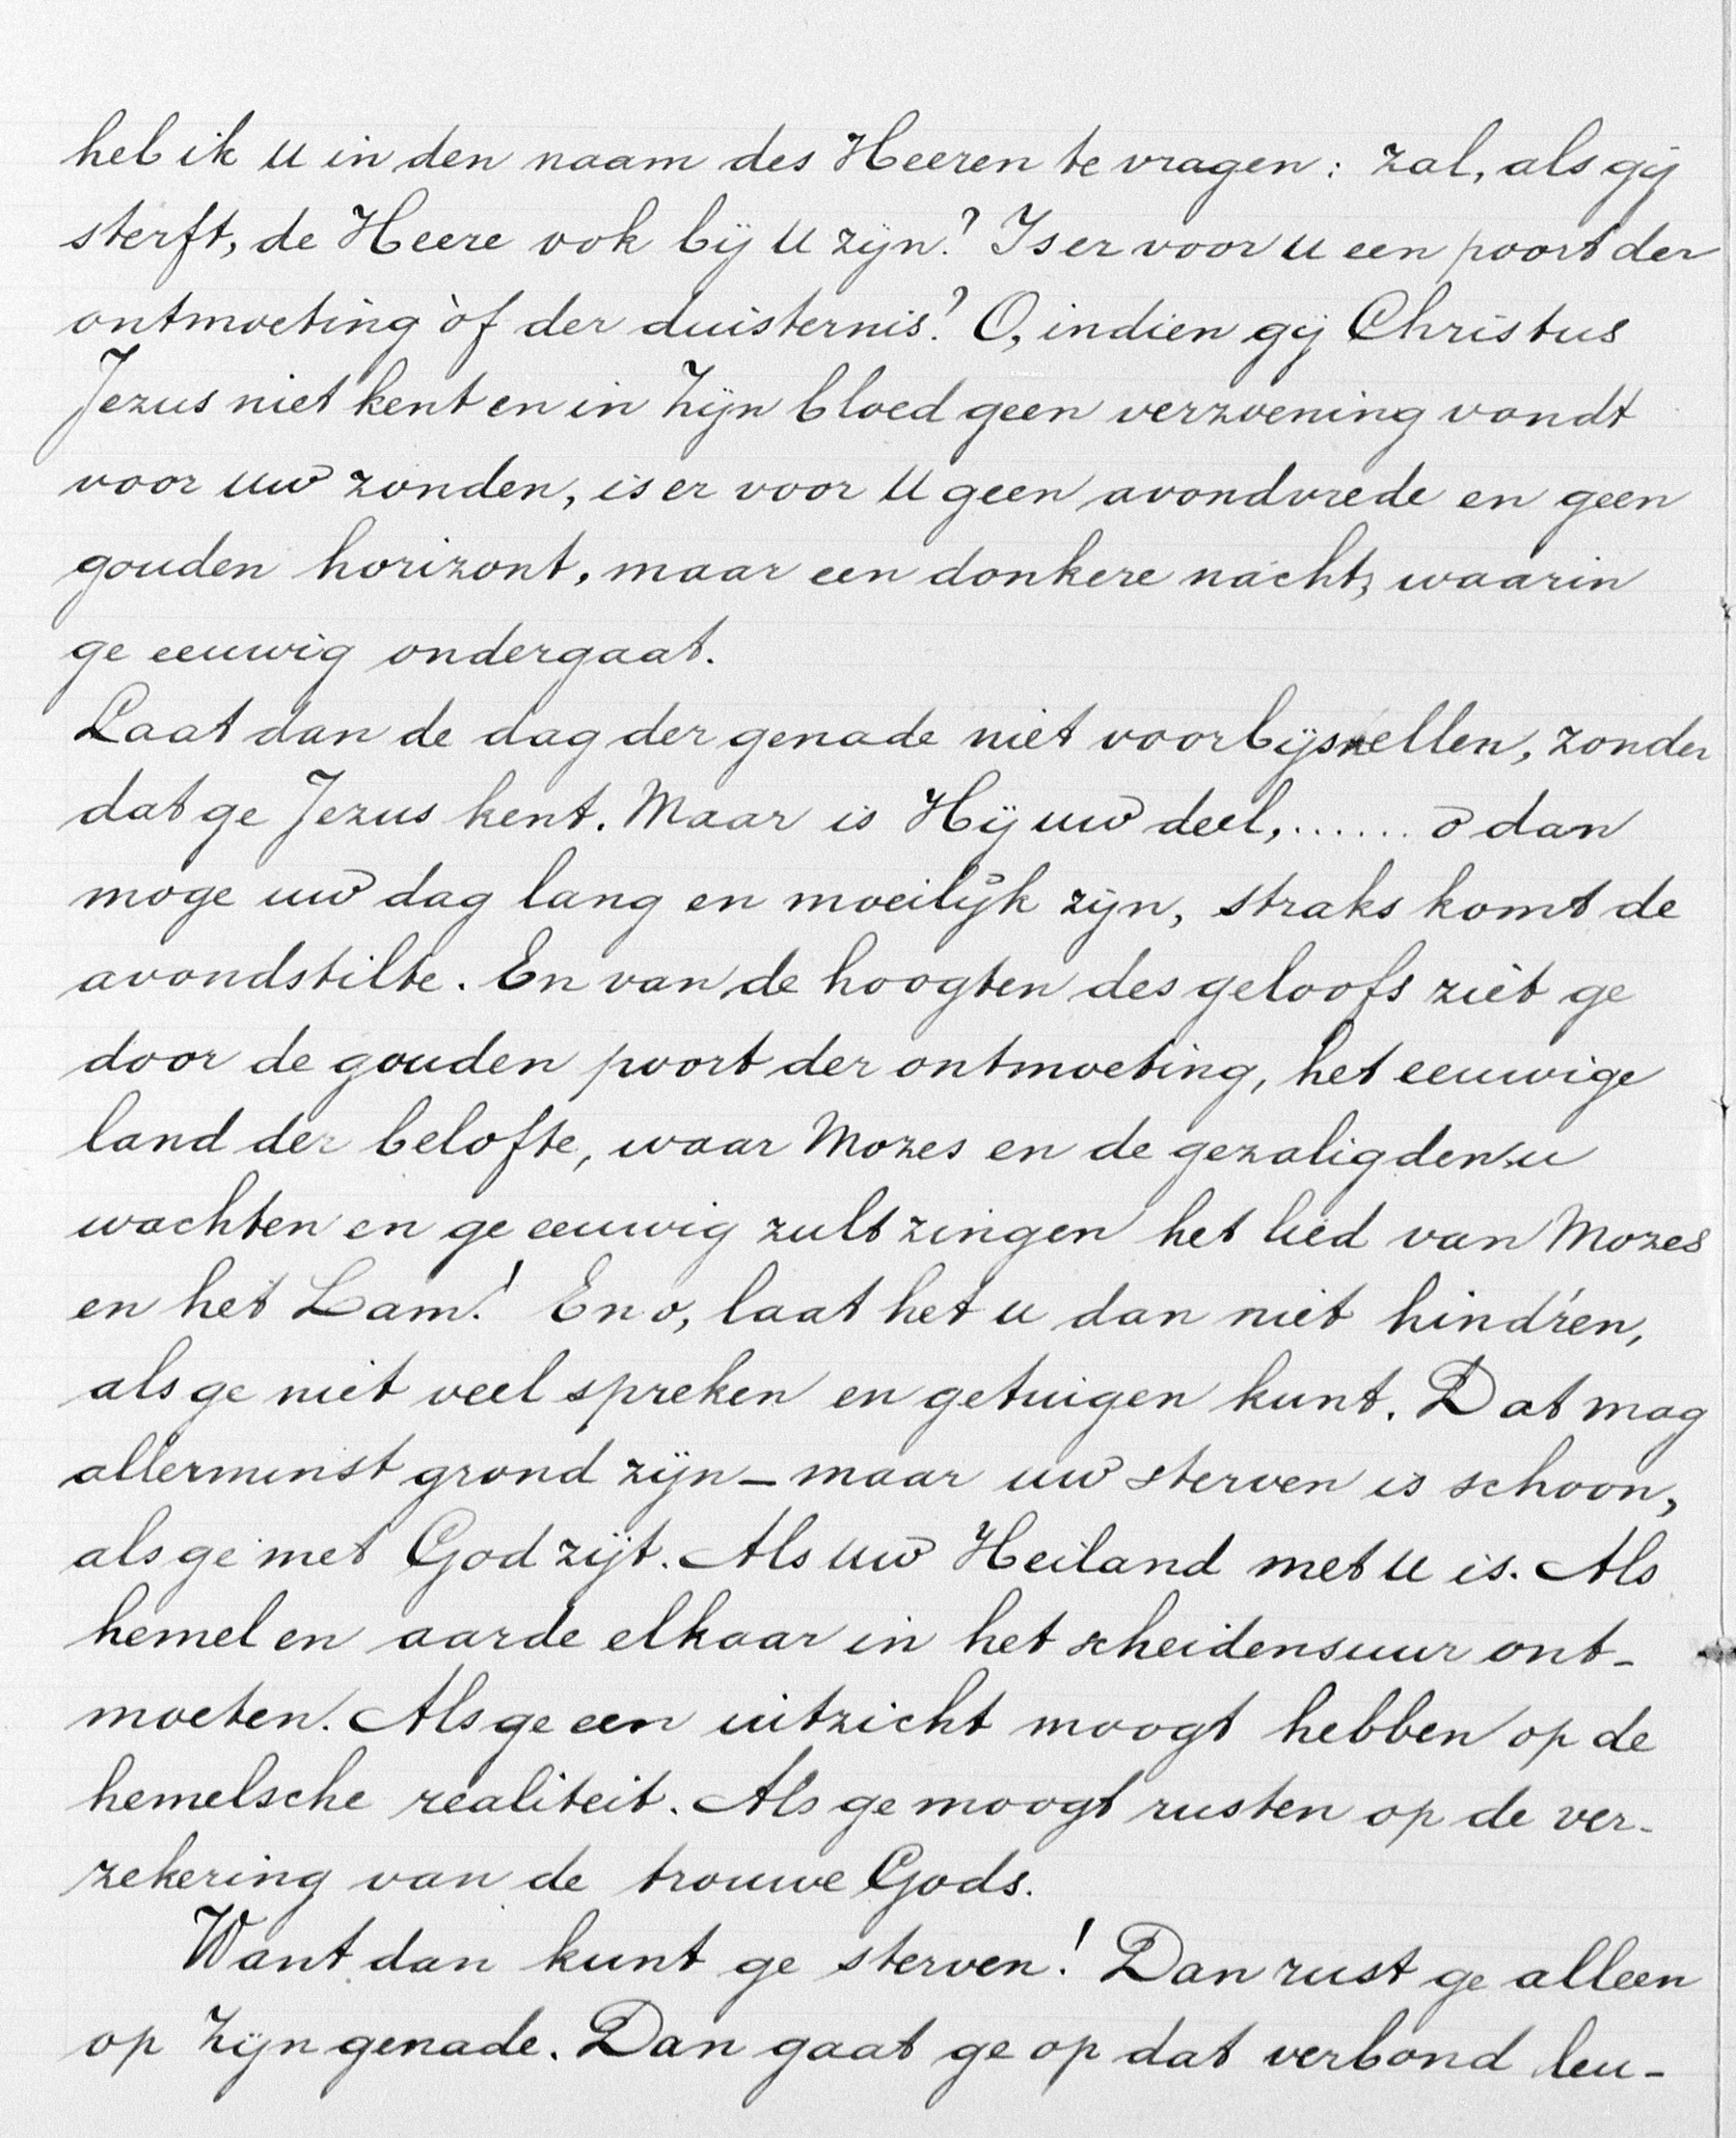 heb ik U in den naam des Heeren te vragen: zal, als gij
sterft, de Heere ook bij U zijn? Is er voor u een poort der
ontmoeting òf der duisternis? O, indien gij Christus
Jezus niet kent en in Zijn bloed geen verzoening vondt
voor uw zonden, is er voor U geen avondvrede en geen
gouden horizont, maar een donkere nacht, waarin
ge eeuwig ondergaat.
Laat dan de dag der genade niet voorbijsnellen, zonder
dat ge Jezus kent. Maar is Hij uw deel,...... o dan
moge uw dag lang en moeilijk zijn, straks komt de
avondstilte. En van de hoogten des geloofs ziet ge
door de gouden poort der ontmoeting, het eeuwige
land der belofte, waar Mozes en de gezaligden u
wachten en ge eeuwig zult zingen het lied van Mozes
en het Lam! En o, laat het u dan niet hind'ren,
als ge niet veel spreken en getuigen kunt. Dat mag
allerminst grond zijn - maar uw sterven is schoon,
als ge met God zijt. Als uw Heiland met U is. Als
hemel en aarde elkaar in het scheidensuur ont-
moeten. Als ge een uitzicht moogt hebben op de
hemelsche realiteit. Als ge moogt rusten op de ver-
zekering van de trouwe Gods.
Want dan kunt ge sterven! Dan rust ge alleen
op Zijn genade. Dan gaat ge op dat verbond leu-